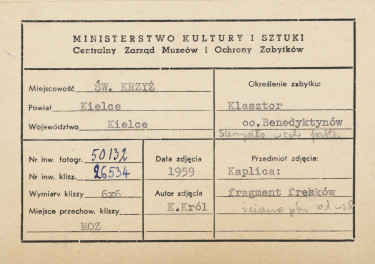 MINISTERSTWO KULTURY I SZTUKI
Centralny Zarząd Muzeów i Ochrony Zabytków
Miejscowość ŚW. KRZYŻ
Powiat Kielce
Województwo Kielce
Określenie zabytku:
Klasztor
oo.Benedyktynów
Nr inw. fotogr. 50132
Nr inw. klisz. 26534
Wymiary kliszy 6x6
Miejsce przechow. kliszy
MOZ
Data zdjęcia
1959
Autor zdjęcia
K.Król
Przedmiot zdjęcia:
Kaplica:
fragment fresków
ściana